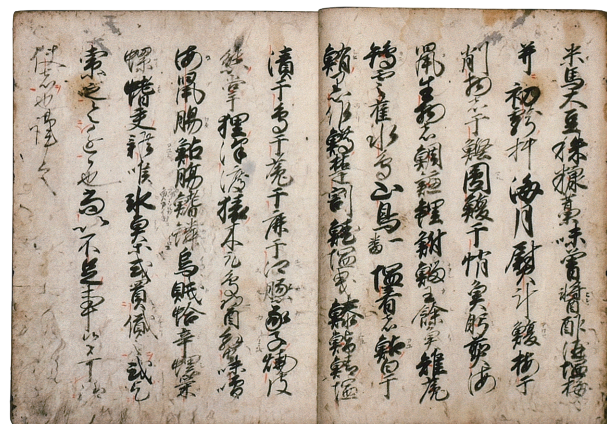 米馬大豆秣糠藁味噌醤酢酒塩梅
并初献料海月熨斗鰒梅干
削物者干鰹圓鰒干蛸魚躬煎海
鼠生物者鯛鱸鯉鮒鯔王餘魚雉兎
鴫雲雀水鳥山鳥一番塩肴者鮎白干
鮪黒作鱒楚割鮭塩曳鯵鮨鯖塩
漬干鳥干兎干鹿干江豚豕子焼皮
熊掌狸澤渡猿木取鳥醤蟹味噌
海鼠腸鮎腸烏賊蛤辛螺栄
螺交雑喉氷魚等或買儲或乞
索之也尚以不足事